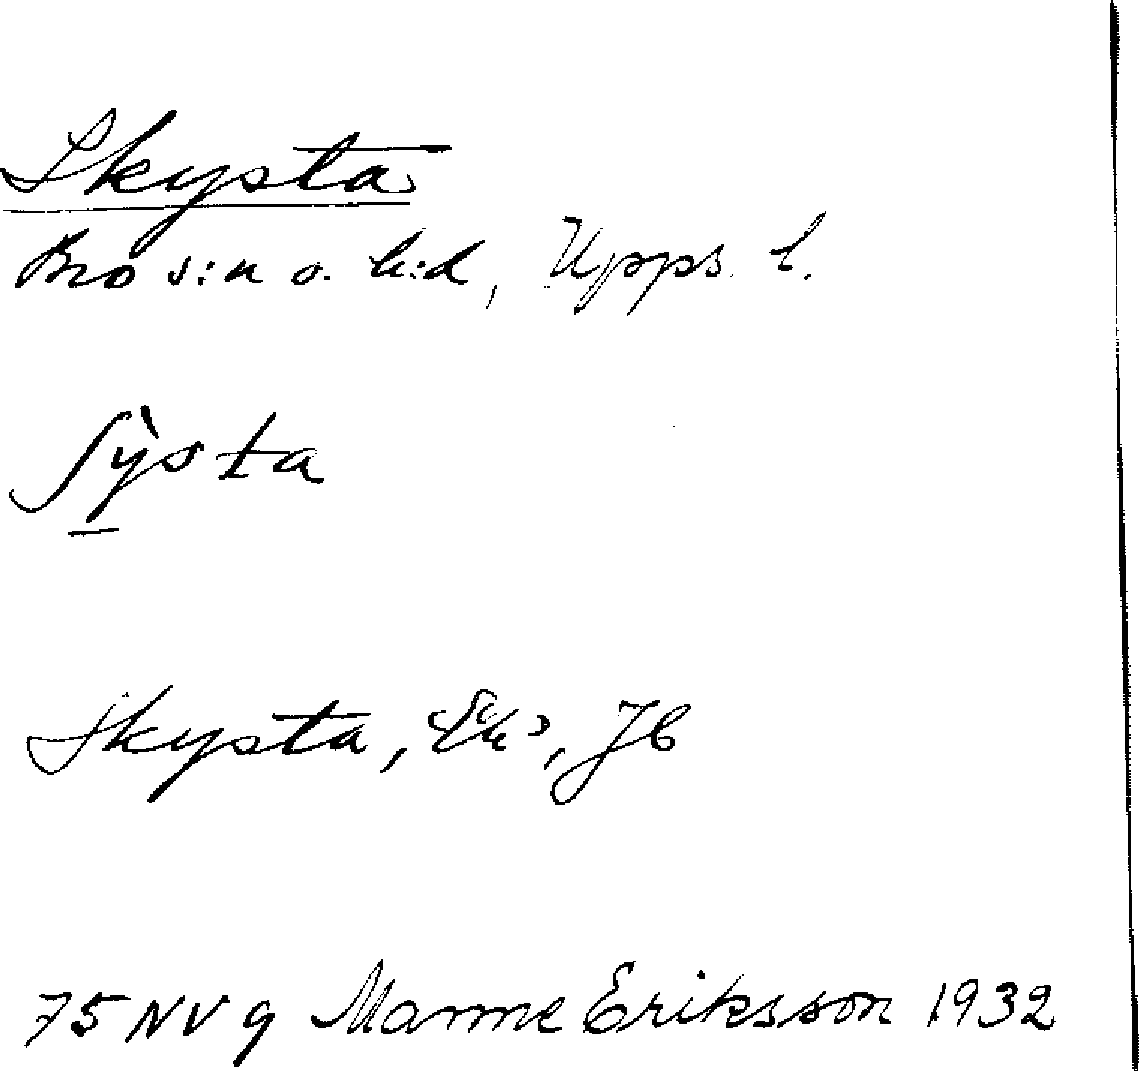 Skysta
Bro s:n o. h:d, Upps. l.
ʃỳsta
Skysta, Ek, JB
75 NV g Manne Eriksson 1932